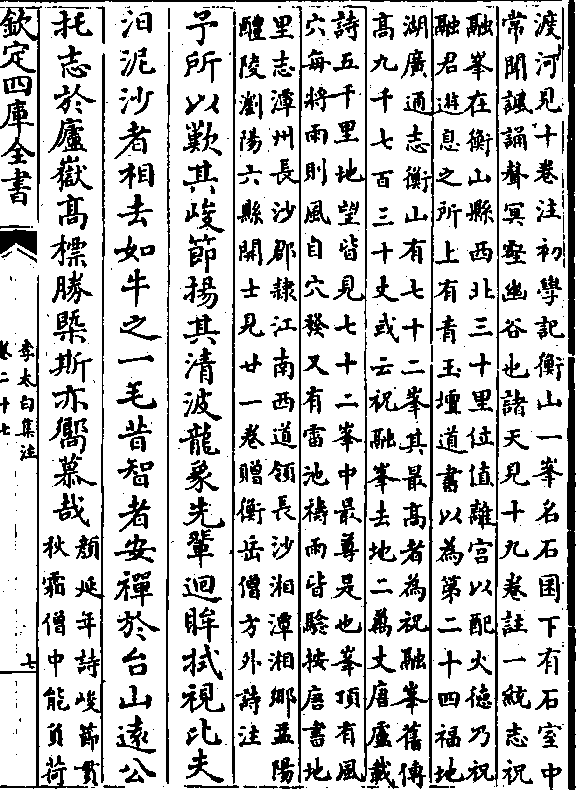 渡河見十卷注初學記衡山一峯名石囷下有石室中
常聞諷誦聲冥壑幽谷也諸天見十九卷註一統志祝
融峯在衡山縣西北三十里位值離宮以配火德乃祝
融君遊息之所上有青玉壇道書以為第二十四福地
湖廣通志衡山有七十二峯其最高者為祝融峯舊傳
高九千七百三十丈或云祝融峯去地二萬丈唐盧載
詩五千里地望皆見七十二峯中最尊是也峯頂有風
穴每將雨則風自穴發又有雷池禱雨皆驗按唐書地
里志潭州長沙郡隸江南西道領長沙湘潭湘鄉益陽
醴陵瀏陽六縣開士見廿一卷贈衡岳僧方外詩注
予所以歎其峻節揚其清波龍象先輩迴眸拭視比夫
汩泥沙者相去如牛之一毛昔智者安禪於台山遠公
托志於廬嶽高標勝槩斯亦嚮慕哉
顏延年詩峻節貫
秋霜僧中能負荷
欽定四庫全書
李太白集注
卷二十七
七